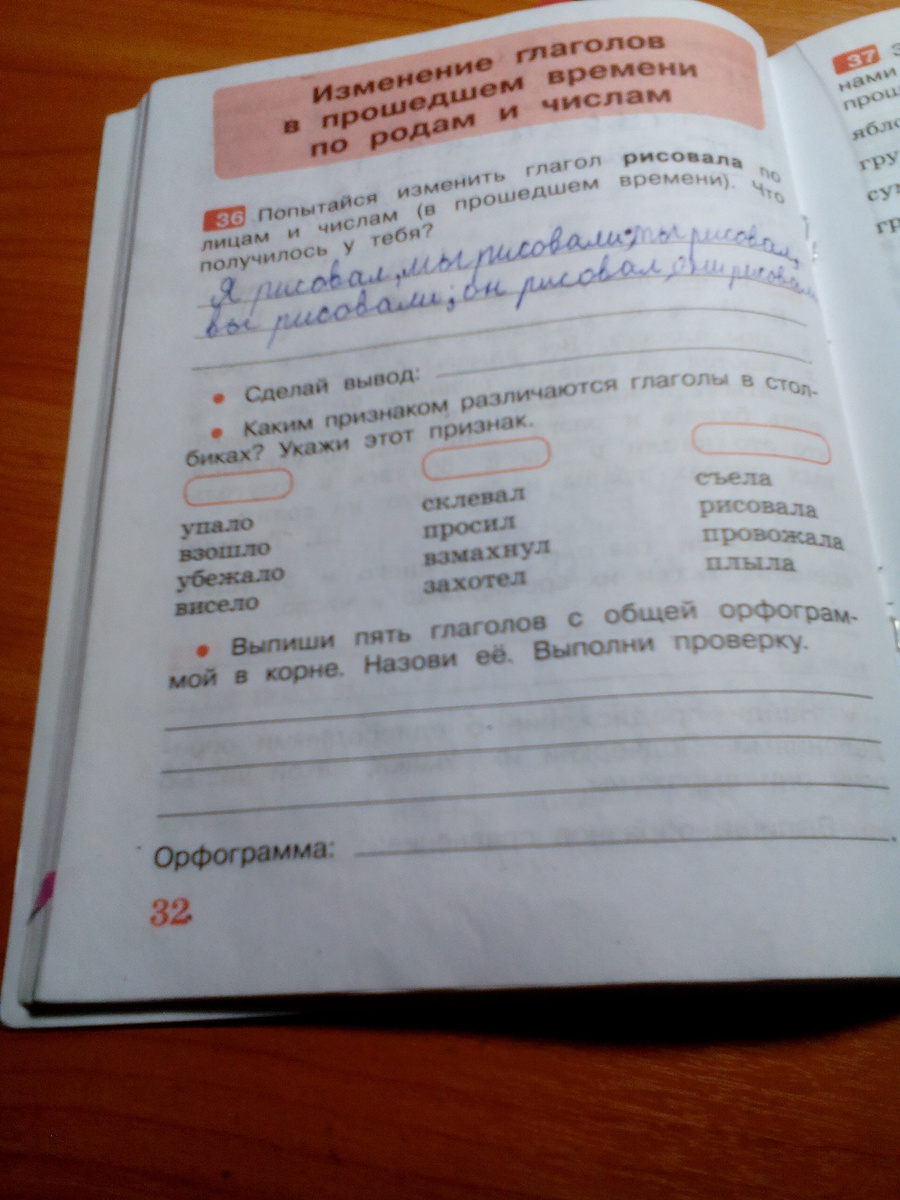 Изменение глаголов
в прошедшем времени
по родам и числам
36 Попытайся изменить глагол рисовала по
лицам и числам (в прошедшем времени). Что
получилось у тебя?
Я рисовал, мы рисовали; ты рисовал,
вы рисовали; он рисовал, они рисовали
• Сделай вывод:
• Каким признаком различаются глаголы в стол-
биках? Укажи этот признак.
упало склевал съела
взошло просил рисовала
убежало взмахнул провожала
висело захотел плыла
• Выпиши пять глаголов с общей орфограм-
мой в корне. Назови её. Выполни проверку.
Орфограмма:
32
37
нами